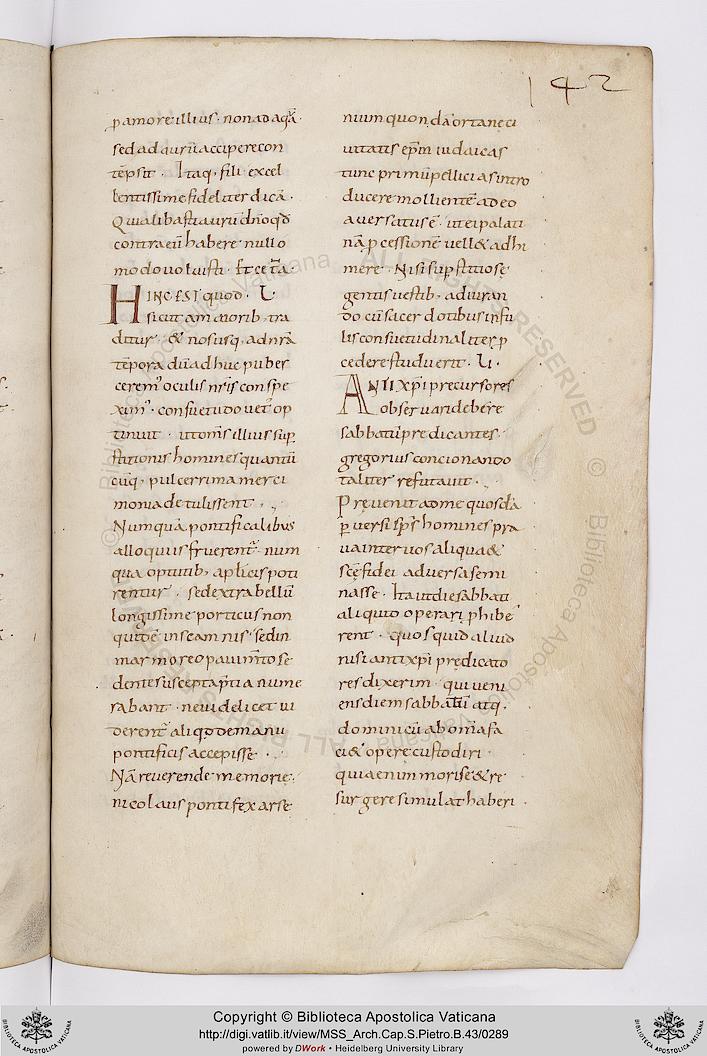 142
p amore illius · non ad aquā ·
sed ad aurū accipere con
tēpsit · Itaq, fili excel
lentissime fideliter dicā ·
Quia libasti aurū dn̄o qd̄
contra eū habere nullo
modo voluisti · Et cetā ·
HINC EST quod · U
sicut am morib, tra
ditur · & nos usq, ad nr̄a
tēpora dū adhuc puber
oculis nr̄is conspe
consuetudo uet op
tinuit · ut om̄s illius sup
stitionis homines quantū
cūq, pulcerrima merci
monia detulissent ·
Numquā pontificalibus
alloquiis fruerent · num
quā optutib, aplicis poti
rentur · sed extra bellū
longissime porticus non
quidē in scamnis · sed in
marmoreo pavimto se
dentes suscepta p̄tia nume
rabant · ne videlicet vi
derent aliqd de manu
pontificis accepisse ·
Nā reverende memorie
nicolaus pontifex arse
nium quondā ortane ci
vitatis ep̄m iudaicas
tunc primū pellicias intro
ducere mollientē adeo
aversatus ē · ut ei palati
nā pcessionē vell& adhi
mere · Nisi sup stitiose
gentis vestib, adiuran
do cū sacerdotibus infu
lis consuetudinaliter p
cedere studuerit · U ·
ANTI XP̄I precursores
observari debere
sabbatū predicantes
gregorius concionando
taliter refutavit ·
Pervenit ad me quosdā
pversi sp̄s homines pra
va inter vos aliqua &
scē fidei adversa semi
nasse · Ita ut die sabbati
aliquid operari phibe
rent · quos quid aliud
nisi antixp̄i predicato
res dixerim · qui veni
ens diem sabbatū atq,
dominicū ab om̄i fa
ci& opere custodiri ·
quia enim mori se & re
surgere simulat haberi
© Biblioteca Apostolica Vaticana
ALL RIGHTS RESERVED
© Biblioteca Apostolica Vaticana
ALL RIGHTS RESERVED
Copyright © Biblioteca Apostolica Vaticana
http://digi.vatlib.it/view/MSS_Arch.Cap.S.Pietro.B.43/0289
powered by DWork • Heidelberg University Library
BIBLIOTECA APOSTOLICA VATICANA
BIBLIOTECA APOSTOLICA VATICANA